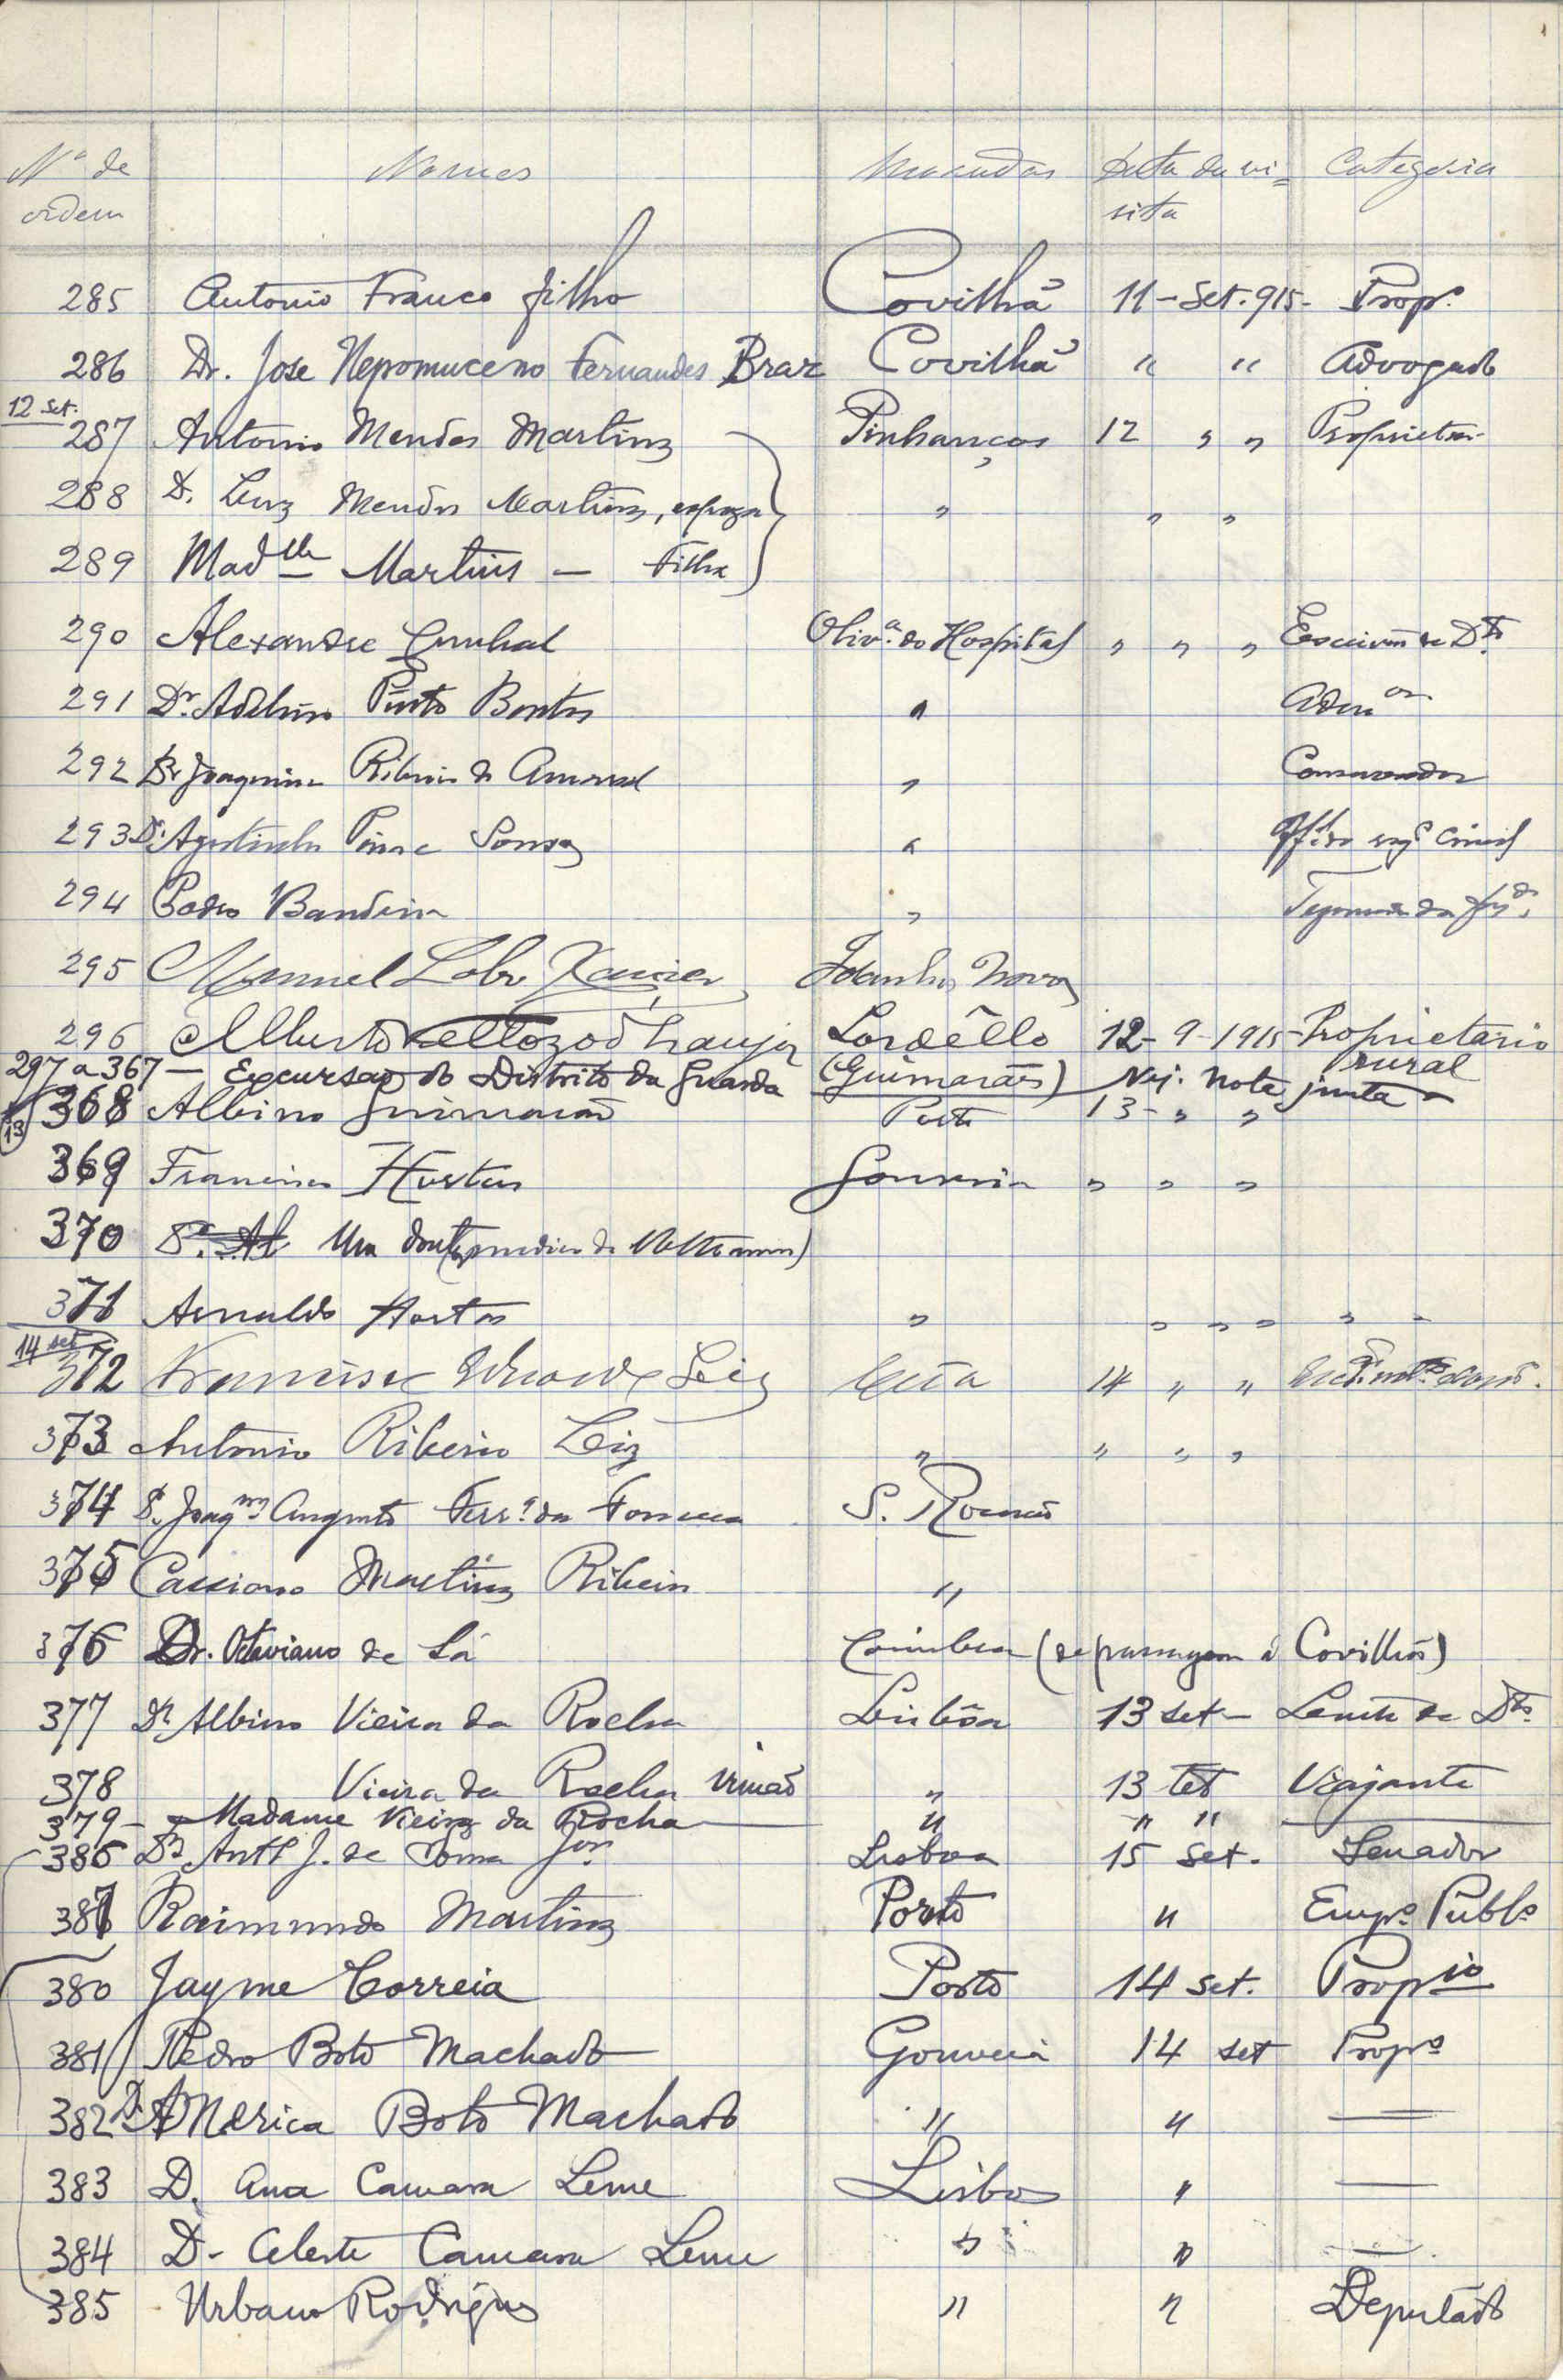 Nº de ordem Nomes Moradas Data da vi=sita Categoria
285 Antonio Franco filho Covilhã 11-Set.915- Propº
286 Dr. Jose Nepomuceno Fernandes Braz Covilhã " " Advogado
12 Set.
287 Antonio Mendes Martins Pinhanços 12 " "
288 D. Luz Mendes Martins, espoza " " "
289 Madlle Martins — Filha
290 Alexandre Cunhal Olivª do Hospital " " " Escrivão de Dto
291 Dr Adelino Pinto Bastos "
292 Dr Joaquim Ribeiro do Amaral " Conservador
293 Dr Agostinho Pina e Souza "
294 Pedro Bandeira "
295 Manuel Lobo Xavier Idanha Nova
296 Alberto Vellozo d'Araujo Lordêllo (Guimarães) 12-9-1915- Proprietario rural
297 a 367 — Excursão do Distrito da Guarda Vej. nota junta
13
368 Albino Guimarães Porto 13- " "
369 Francisco Hortas Gouveia " " "
370 Um
371 Arnaldo Hortas " " " " " "
14 set
372 Francisco Leiz Ceia 14 " "
373 Antonio Ribeiro Leiz " " " "
374 Joaqm Augusto Ferrª da Fonseca S. Romão
375 Cassiano Martins Ribeiro "
376 Dr. Otaviano de Sá Coimbra (de passagem á Covilhã)
377 Dr Albino Vieira da Rocha Lisbôa 13 set- Lente de Dto
378 Vieira da Rocha irmão " 13 set Viajante
379- Madame Vieira da Rocha " " "
386 Dr Antº J. de Jor Lisboa 15 Set. Senador
387 Raimundo Martins Porto " Empº Publº
380 Jayme Correia Porto 14 set. Propio
381 Pedro Boto Machado Gouveia 14 set Propº
382 D. America Boto Machado " " —
383 D. Ana Camara Leme Lisboa " —
384 D. Celeste Camara Leme " " —
385 Urbano Rodrigues " " Deputado